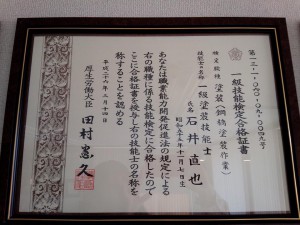 一級技能検定合格証書
検定職種 塗装(鋼橋塗装作業)
技能士の名称 一級塗装技能士
氏名 石井直也
あなたは職業能力開発促進法の規定による
右の職種に係る技能検定に合格したので
ここに合格証書を授与し右の技能士の名称を
称することを認める
平成二十六年三月十四日
厚生労働大臣 田村憲久